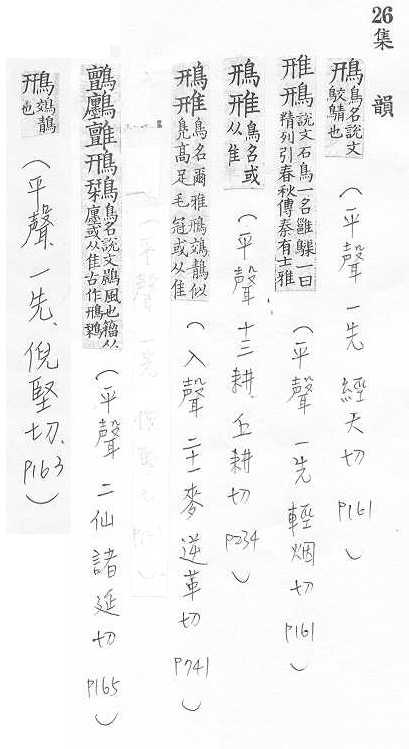 26集韻
鳽鳥名說文鵁鶄也(平聲一先經天切P161)
雃鳽說文石鳥一名雝䳭一曰精列引春秋傳秦有士雃(平聲一先輕烟切P161)
鳽雃鳥名或从隹(平聲十三耕、丘耕切P234)
鳽雃鳥名爾雅鳽鵁鶄似鳧高足毛冠或从隹(入聲二十一麥逆革切P741)
鳥名說文鷐風也籀从廛或从隹古作鳽(平聲二仙諸延切P165)
鳽鵁鶄也(平聲、一先、倪堅切、P163)